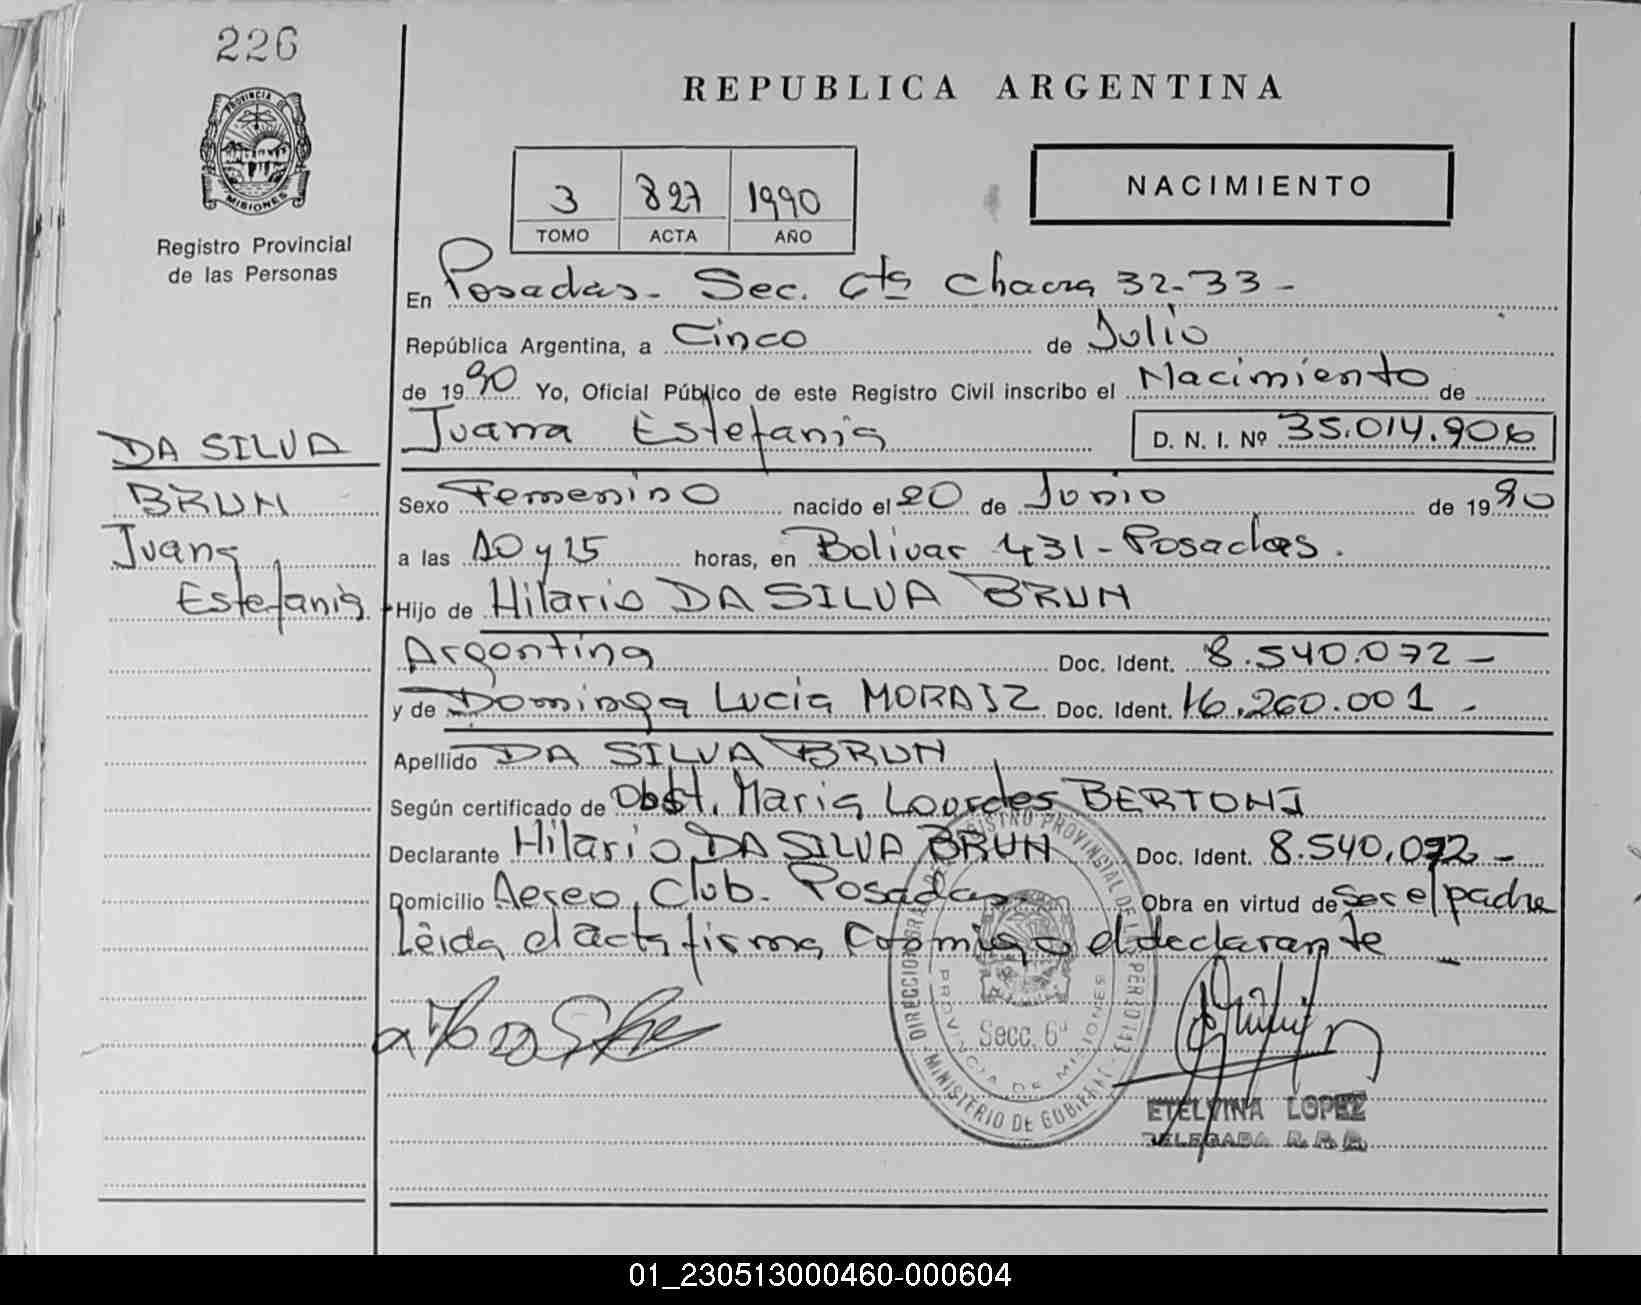 226
REPUBLICA ARGENTINA
PROVINCIA DE
MISIONES
Registro Provincial
de las Personas
3 827 1990
TOMO ACTA AÑO
NACIMIENTO
En Posadas - Sec. 6ta Chacra 32-33 -
República Argentina, a Cinco de Julio
de 1990 Yo, Oficial Público de este Registro Civil inscribo el Nacimiento de
Juana Estefania D. N. I. Nº 35.014.906
DA SILVA
BRUN
Juana
Estefania
Sexo Femenino nacido el 20 de Junio de 1990
a las 10 y 25 horas, en Bolivar 431 - Posadas.
Hijo de Hilario DA SILVA BRUN
Argentina Doc. Ident. 8.540.072 -
y de Dominga Lucia MORAIZ Doc. Ident. 16.260.001 -
Apellido DA SILVA BRUN
Según certificado de Obst. Maria Lourdes BERTONI
Declarante Hilario DA SILVA BRUN Doc. Ident. 8.540.072 -
Domicilio Aereo Club - Posadas Obra en virtud de ser el padre
Leida el acta firma conmigo el declarante -
DIRECCION REGISTRO PROVINCIAL DE
MINISTERIO DE GOBIERNO
PROVINCIA DE MISIONES
Secc. 6ª
ETELVINA LOPEZ
DELEGADA R. P. P.
01_230513000460-000604